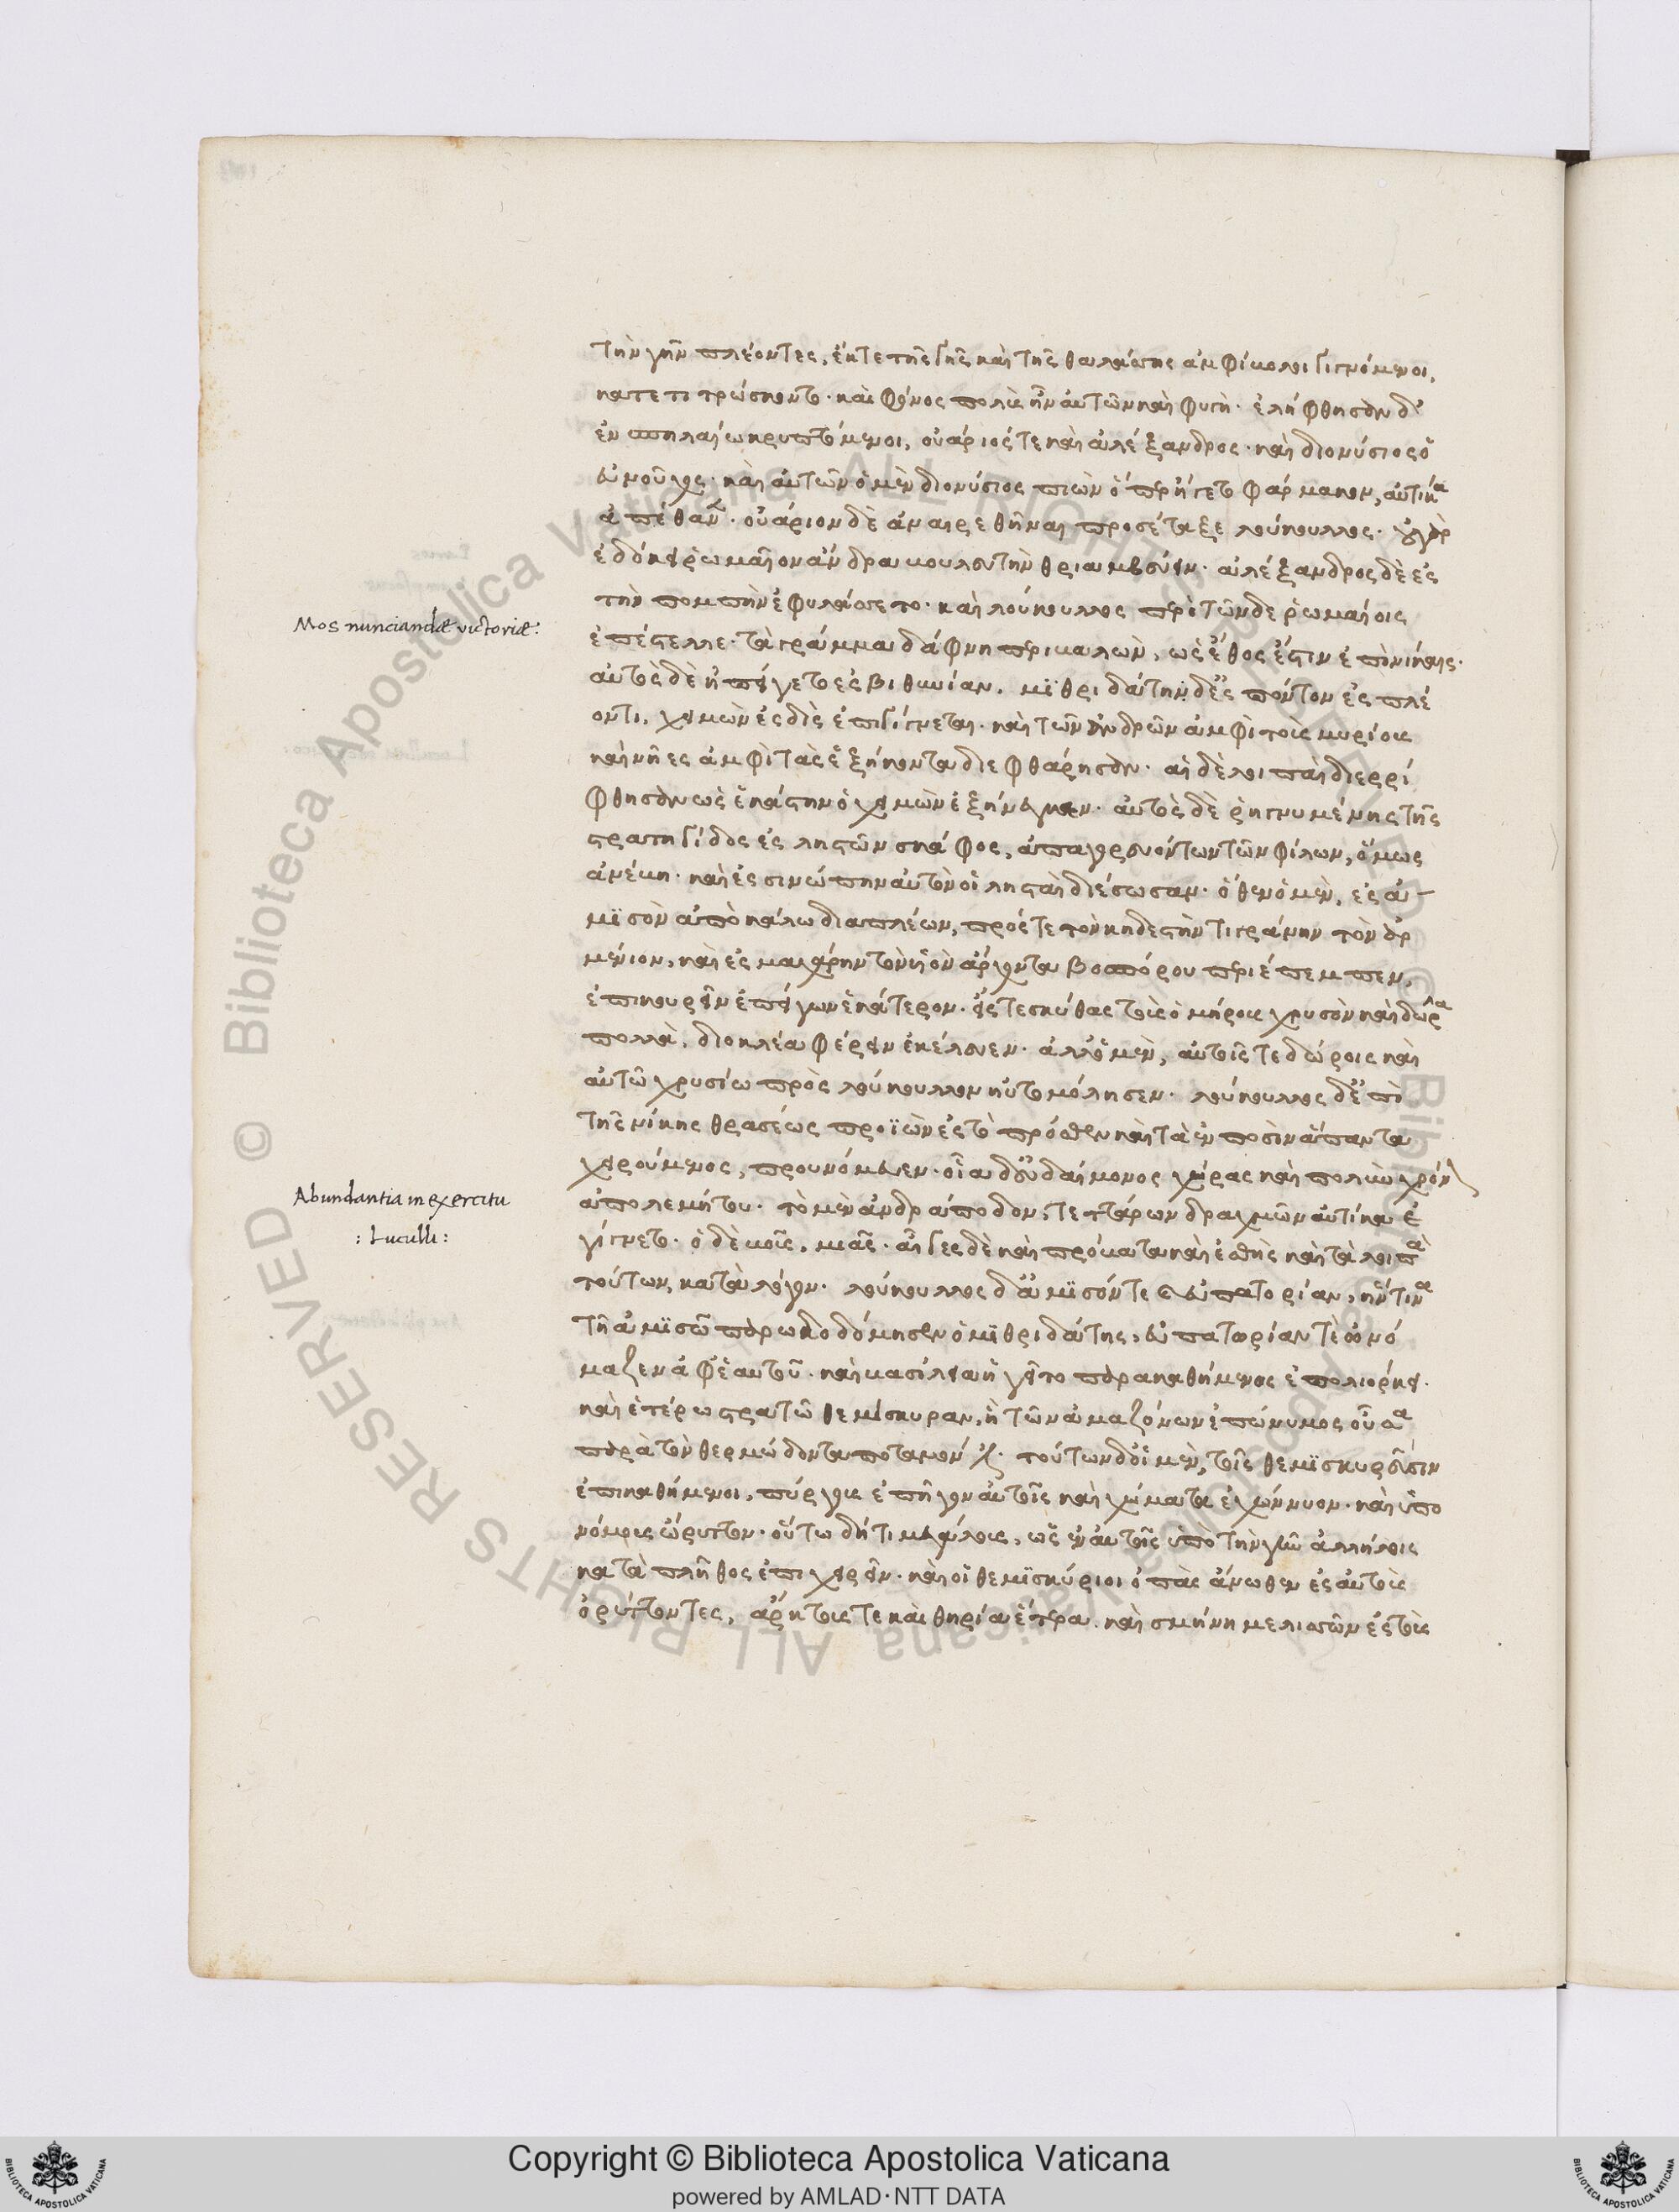 τὴν γῆν πλέοντες, ἔκ τε τῆς γῆς καὶ τῆς θαλάσσης ἀμφίβολοι γιγνόμενοι,
κατετιτρώσκοντο· καὶ φόνος πολὺς ἦν αὐτῶν καὶ φυγή· ἐλήφθησαν δ'
ἐν σπηλαίω κρυπτόμενοι, οὐάριός τε καὶ ἀλέξανδρος· καὶ διονύσιος ὁ
εὐνοῦχος· καὶ αὐτῶν ὁ μὲν διονύσιος πιὼν ὃ περιῆγετο φάρμακον, αὐτίκα
ἀπέθανε· οὐάριον δὲ ἀναιρεθῆναι προσέταξε λούκουλλος· οὐ γὰρ
ἐδόκει ῥωμαῖον ἄνδρα βουλευτὴν θριαμβεύειν· ἀλέξανδρος δὲ ἐς
τὴν πομπὴν ἐφυλάσσετο· καὶ λούκουλλος περὶ τῶνδε ῥωμαίοις
Mos nunciandæ victoriæ:
ἐπέστελλε· τὰ γράμματα δάφνη περιβαλὼν, ὡς ἔθος ἐστὶν ἐπὶ νίκαις·
αὐτὸς δὲ ἠπείγετο ἐς βιθυνίαν. μϊθριδάτην δ' ἐς πόντον ἐσπλέ
οντι, χειμὼν ἐς δὶς ἐπιγίγνεται· καὶ τῶν ἀνδρῶν ἀμφὶ τοὺς μυρίους
καὶ νῆες ἀμφὶ τὰς ἑξήκοντα διεφθάρησαν· αἱ δὲ λοιπαὶ διερρί
φθησαν ὡς ἑκάστην ὁ χειμὼν ἐξήνεγκεν· αὐτὸς δὲ ῥηγνυμένης τῆς
στρατηγίδος ἐς λῃστῶν σκάφος, ἀπαγορευόντων τῶν φίλων, ὅμως
ἀνέβη· καὶ ἐς σινώπην αὐτὸν οἱ λῃσταὶ διέσωσαν· ὅθεν ὁ μὲν, ἐς ἀ-
μϊσὸν ἀπὸ κάλω διαπλέων, πρός τε τὸν κηδεστὴν τιγράνην τὸν ἀρ
μένιον, καὶ ἐς μαχάρην τὸν υἱὸν ἄρχοντα βοσπόρου περιέπεμπεν,
ἐπικουρεῖν ἐπείγων ἑκάτερον· ἔς τε σκύθας τοὺς ὁμήρους χρυσὸν καὶ δῶρα
πολλὰ, διοκλέα φέρειν ἐκέλευεν· ἀλλ' ὁ μὲν, αὐτοῖς τε δώροις καὶ
αὐτῶ χρυσίω πρὸς λούκουλλον ηὐτομόλησεν· λούκουλλος δ' ἐπὶ
τῆς νίκης θρασέως προϊὼν ἐς τὸ πρόσθεν καὶ τὰ ἐν ποσὶν ἅπαντα
χειρούμενος, προυνόμευεν· οἷα δ' εὐδαίμονος χώρας καὶ πολὺν χρόνον
Abundantia in exercitu
: Luculli :
ἀπολεμήτου· τὸ μὲν ἀνδράποδον, τεττάρων δραχμῶν αὐτίκα ἐ
γίγνετο· ὁ δὲ βοῦς, μιᾶς· αἶγες δὲ καὶ πρόβατα καὶ ἐσθὴς καὶ τὰ λοιπὰ
τούτων, κατὰ λόγον· λούκουλλος δ' ἀμϊσόν τε εὐπατορίαν, ἥντινα
τῆ ἀμϊσῶ παρωκοδόμησεν ὁ μϊθριδάτης, εὐπατορίαν τὲ ὠνό
μαζεν ἀφ' ἑαυτοῦ· καὶ βασίλεια ἡγεῖτο παρακαθήμενος ἐπολιόρκει.
καὶ ἑτέρω στρατῶ θεμίσκυραν, ἣ τῶν ἀμαζόνων ἐπώνυμος οὖσα
παρὰ τὸν θερμώδοντα ποταμόν ἐστι· τούτων δ' οἱ μὲν, τοῖς θεμϊσκυρεῦσιν
ἐπικαθήμενοι, πύργους ἐπῆγον αὐτοῖς καὶ χώματα ἐχώννυον· καὶ ὑπο
νόμους ὤρυττον· οὕτω δή τι μεγάλους, ὡς ἐν αὐτοῖς ὑπὸ τὴν γῆν ἀλλήλοις
κατὰ πλῆθος ἐπιχειρεῖν· καὶ οἱ θεμϊσκύριοι ὀπὰς ἄνωθεν ἐς αὐτοὺς
ὀρύττοντες, ἄρκτους τε καὶ θηρία ἕτερα· καὶ σμήνη μελισσῶν ἐς τοὺς
Copyright © Biblioteca Apostolica Vaticana
powered by AMLAD·NTT DATA